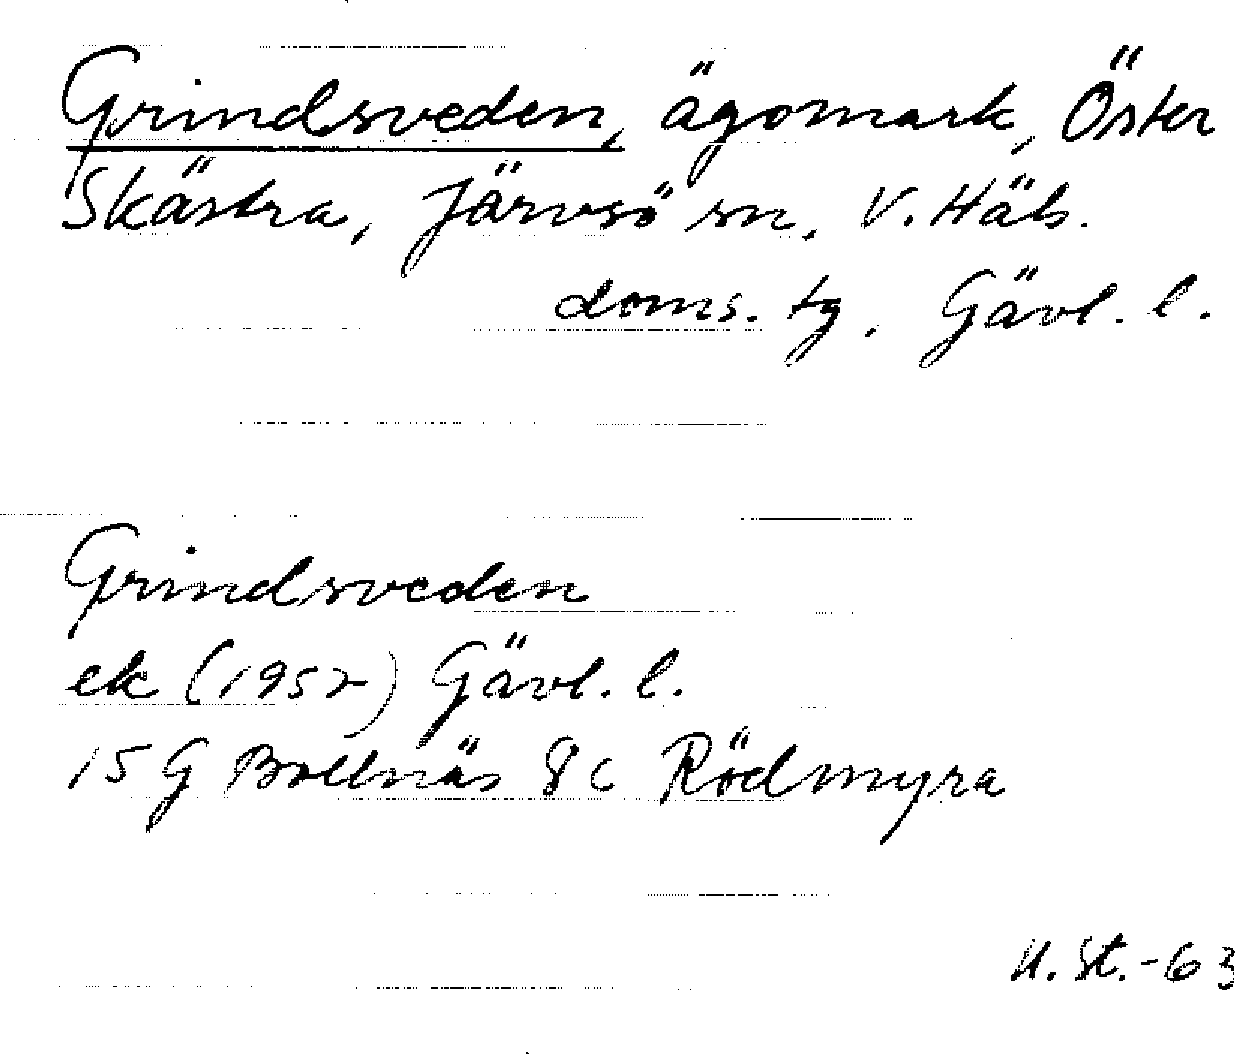 Grindsveden, ägomark, Öster
Skästra, Järvsö sn, V. Häls.
doms. tg, Gävl. l.
Grindsveden
ek (1952) Gävl. l.
15 G Bollnäs 8 c Rödmyra
U. St. -63